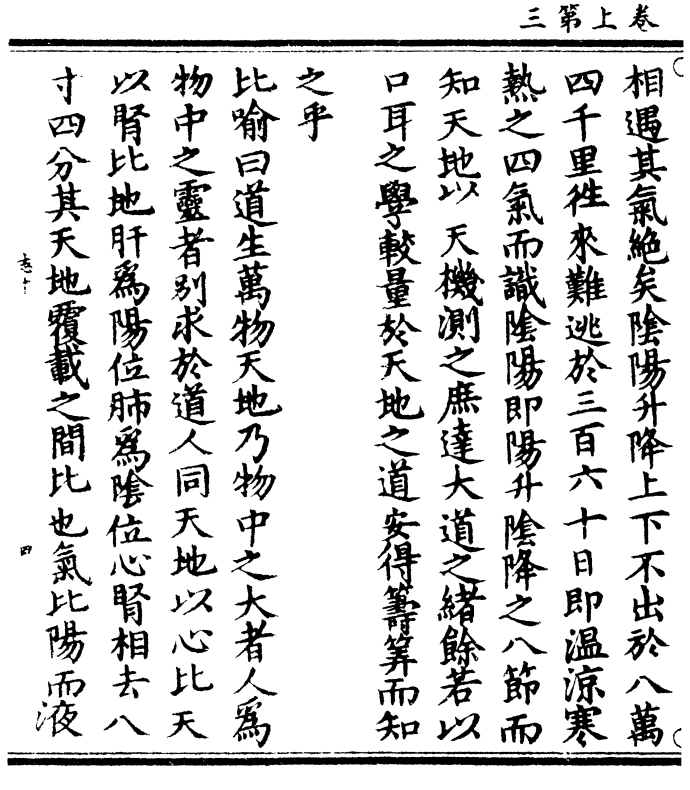 卷上第三
相遇其氣絕矣陰陽升降上下不出於八萬
四千里徃來難逃於三百六十日即温凉寒
熱之四氣而識陰陽即陽升陰降之八節而
知天地以天機測之庶達大道之緒餘若以
口耳之學較量於天地之道安得籌筭而知
之乎
比喻曰道生萬物天地乃物中之大者人爲
物中之靈者别求於道人同天地以心比天
以腎比地肝爲陽位肺爲陰位心腎相去八
寸四分其天地覆載之間比也氣比陽而液
四